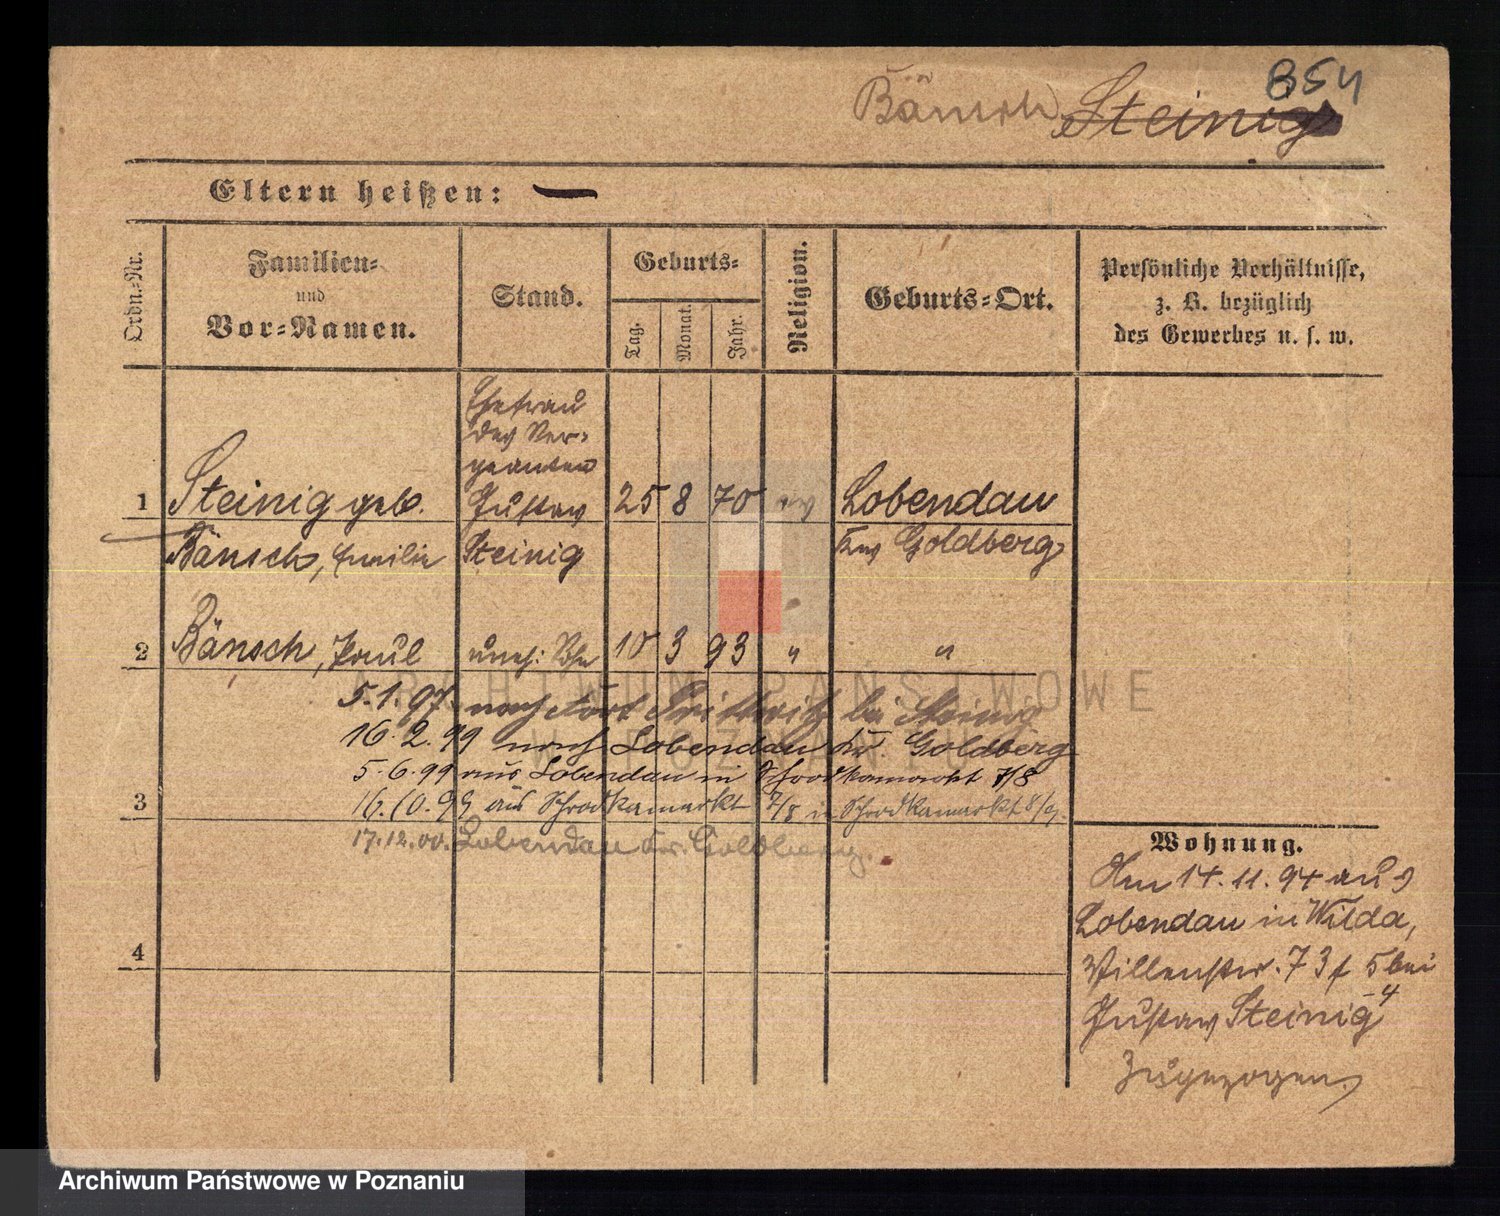 854
Bänsch Steinig
Eltern heißen: —
Ordn.-Nr.
Familien-
und
Vor-Namen.
Stand.
Geburts-
Tag.
Monat.
Jahr.
Religion.
Geburts-Ort.
Persönliche Verhältnisse,
z. B. bezüglich
des Gewerbes u. s. w.
1
Steinig geb.
Bänsch, Emilie
Ehefrau
des Ser-
geanten
Gustav
Steinig
25 8 70 ev
Lobendau
Krs Goldberg
2
Bänsch, Paul
uneh: Sohn
10 3 93 "
"
5.1.97 nach Fort Prittwitz bei Steinig
16.2.99 nach Lobendau Kr. Goldberg
5.6.99 aus Lobendau in Schrodkamarkt 7/8
3
16.10.99 aus Schrodkamarkt 7/8 in Schrodkamarkt 8/9.
17.12.00. Lobendau Kr. Goldberg.
4
Wohnung.
Am 14.11.94 aus
Lobendau in Wilda,
Villenstr. 73 f 5 bei
Gustav Steinig 4
zugezogen.
ARCHIWUM PAŃSTWOWE
W POZNANIU
Archiwum Państwowe w Poznaniu